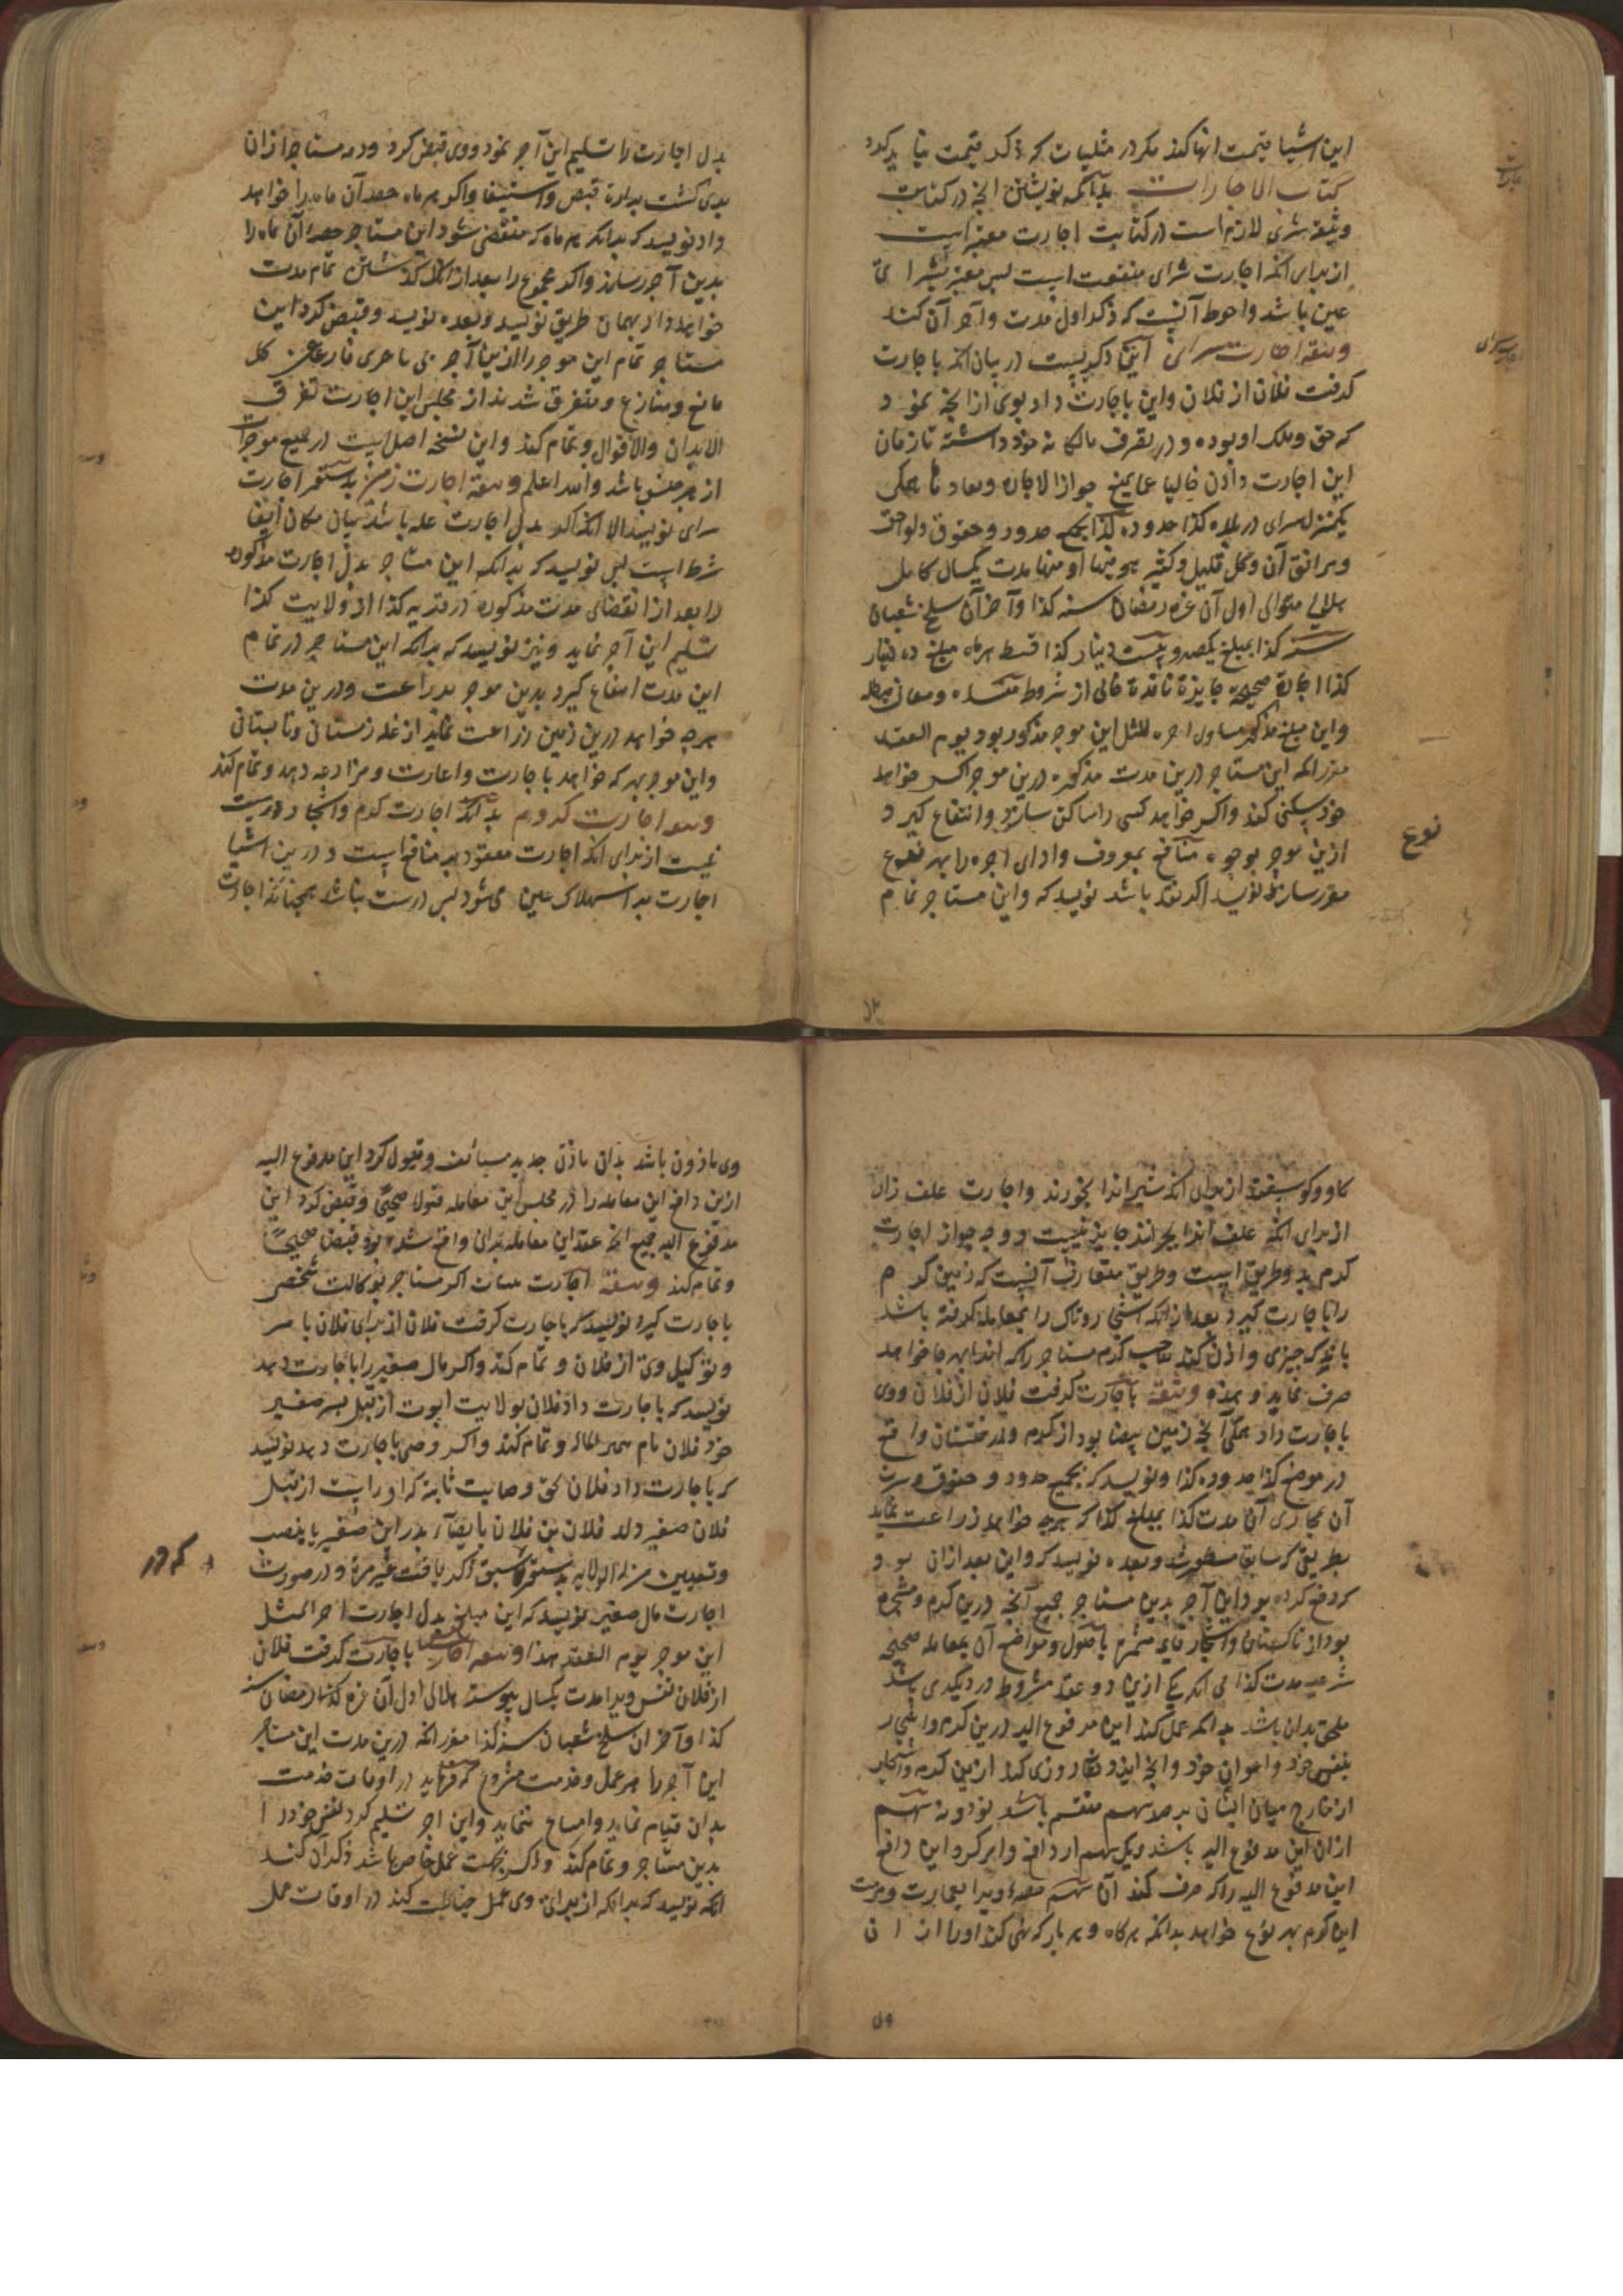 این اشیا قیمت انها کند مکر در مثلیات که ذکر قیمت نباید کرد
کتاب الاجارات بدانکه نوشتن انچه در کتابت
وثیقه شری لازم است در کتابت اجارت معتبر است
از برای انکه اجارت شرای منفعت است پس معتبر بشرای
عین باشد واحوط آنست که ذکر اول مدت وآخر آن کند
وثیقه اجارت سرای اینها ذکریست در بیان انکه باجارت
کرفت فلان از فلان واین باجارت داد بوی از انچه نمود
که حق وملک او بوده و در تصرف مالکانه خود داشته تا زمان
این اجارت دادن خالیا عما یمنع جواز الاجاره ومعاد تا همکی
یکمنزل سرای در بلده کذا حدوده کذا بجمیع حدود وحقوق ولواحق
ومرافق آن وکل قلیل وکثیر هو فیها او منها مدت یکسال کامل
هلالی متوالی اول آن غره رمضان سنه کذا وآخر آن سلخ شعبان
سنه کذا بمبلغ یکصد وبیست دینار کذا قسط هر ماه مبلغ ده دینار
کذا اجارة صحیحة جایزة نافذة خالی از شروط مفسده ومعانی مبطله
واین مبلغ مذکور مساوی اجره المثل این موجر مذکور بود یوم العقد
مقرر انکه این مستاجر درین مدت مذکوره درین موجر اکر خواهد
خود سکنی کند واکر خواهد کسی را ساکن سازد وانتفاع کیرد
ازین موجر بوجوه منافع بمعروف وادای اجره را بهر نوع
نوع
مقرر سازند نویسد اکر نقد باشد نویسد که واین مستاجر تمام
بدل اجارت را تسلیم این آجر نمود ووی قبض کرد وذمه مستاجر ازان
بری کشت براءة قبض واستیفا واکر هر ماه حصه آن ماه را خواهد
داد نویسد که بدانکه هر ماه که منقضی شود این مستاجر حصه آن ماه را
بدین آجر رساند واکر مجموع را بعد از انکه کذشتن تمام مدت
خواهد داد بهمان طریق نویسد وبعده نویسد وقبض کرد این
مستاجر تمام این موجر را ازین آجر فارغا عن کل
مانع ومنازع ومتفرق شدند از مجلس این اجارت تفرق
الابدان والاقوال وتمام کند واین نسخه اصل است در جمیع موجرات
از هر جنس باشد والله اعلم وثیقه اجارت زمین بدستور اجارت
سرای نویسد الا انکه اکر بدل اجارت غله باشد بیان مکان ایفا
شرط است پس نویسد که بدانکه این مستاجر بدل اجارت مذکوره
را بعد از انقضای مدت مذکوره در قریه کذا از ولایت کذا
تسلیم این آجر نماید ونیز نویسد که بدانکه این مستاجر در تمام
این مدت انتفاع کیرد بدین موجر بزراعت ودرین مدت
هرچه خواهد درین زمین زراعت نماید از غله زمستانی وتابستانی
واین موجر بهر که خواهد باجارت واعارت ومزارعه دهد وتمام کند
وثیقه اجارت کروم بدانکه اجارت کرم واشجار درست
نیست از برای انکه اجارت معقود بر منافع است ودرین اشیا
اجارت بر استهلاک عین می شود پس درست نباشد همچنانکه اجارت
کاو وکوسفند از برای انکه شیر اندا بخورند واجارت علف زار
از برای انکه علف اندا بچرانند جایز نیست ووجه جواز اجارت
کرم بدو طریق است وطریق متعارف آنست که زمین کرم
را باجارت کیرد بعد از انکه اشجار وتاک را بمعامله کرفته باشد
باندک چیزی واذن کند صاحب کرم مستاجر را که اندا بهر جا خواهد
صرف نماید وبعده وثیقه باجارت کرفت فلان از فلان ووی
باجارت داد همکی انچه زمین بیضا بود از کرم ودرختستان واقع
در موضع کذا حدوده کذا ونویسد که بجمیع حدود وحقوق
آن مجاری آن مدت کذا بمبلغ کذا که هرچه خواهد زراعت نماید
بطریقی که سابق مسطور شد وبعده نویسد که واین بعد ازان بود
که دفع کرده بود این آجر بدین مستاجر جمیع آنچه درین کرم ومشجره
بود از تاکستان واشجار مثمره باصول ومواضع آن بمعامله صحیحه
شرعیه مدت کذا بی انکه یکی ازین دو عقد مشروط در دیکری باشد
ملحق بدان باشد بدانکه عمل کند این مدفوع الیه درین کرم واشجار
بنفس خود واعوان خود وانچه ایزد تعالی روزی کند ازین کرم واشجار
از خارج میان ایشان بر صد سهم منقسم باشد نود ونه سهم
ازان این مدفوع الیه باشد ویک سهم از دافع وامر کرد این دافع
این مدفوع الیه را که صرف کند آن سهم ویرا بعمارت ومرمت
این کرم بهر نوع خواهد بدانکه هر کاه وهر بار که نهی کند او را ازان
وی ماذون باشد بدان باذن جدید مستانف وقبول کرد این مدفوع الیه
ازین دافع این معامله را در مجلس این معامله قبولا صحیحا وقبض کرد این
مدفوع الیه جمیع انچه عقد این معامله بران واقع شده بود قبضا صحیحا
وتمام کند وثیقه اجارت اکر مستاجر بوکالت شخصی
باجارت کیرد نویسد که باجارت کرفت فلان از برای فلان بامر
وتوکیل وی از فلان وتمام کند واکر مال صغیر را باجارت دهد
نویسد که باجارت داد فلان بولایت ابوت از قبل پسر صغیر
خود فلان نام وتمام کند واکر وصی باجارت دهد نویسد
که باجارت داد فلان بحق وصایت ثابته که او راست از قبل
فلان صغیر ولد فلان بن فلان بایصاء پدر این صغیر یا بنصب
وتعیین من له الولایه بدستور که سبق اکر یافت غیره ودر صورت
که در
اجارت مال صغیر نویسد که این مبلغ بدل اجارت اجر المثل
این موجر یوم العقد هذا وثیقه اجارت نفس باجارت کرفت فلان
از فلان نفس ویرا مدت یکسال پیوسته هلالی اول آن غره رمضان سنه
کذا وآخر ان سلخ شعبان سنه کذا مقرر انکه درین مدت این مستاجر
این آجر را هر عمل وخدمت مشروع که فرماید در اوقات خدمت
بدان قیام نماید وامتناع ننماید واین اجر تسلیم کرد نفس خود را
بدین مستاجر وتمام کند واکر بجهت عمل خاص باشد ذکر آن کند
انکه نویسد که بدانکه از برای وی عمل خیاطت کند در اوقات عمل